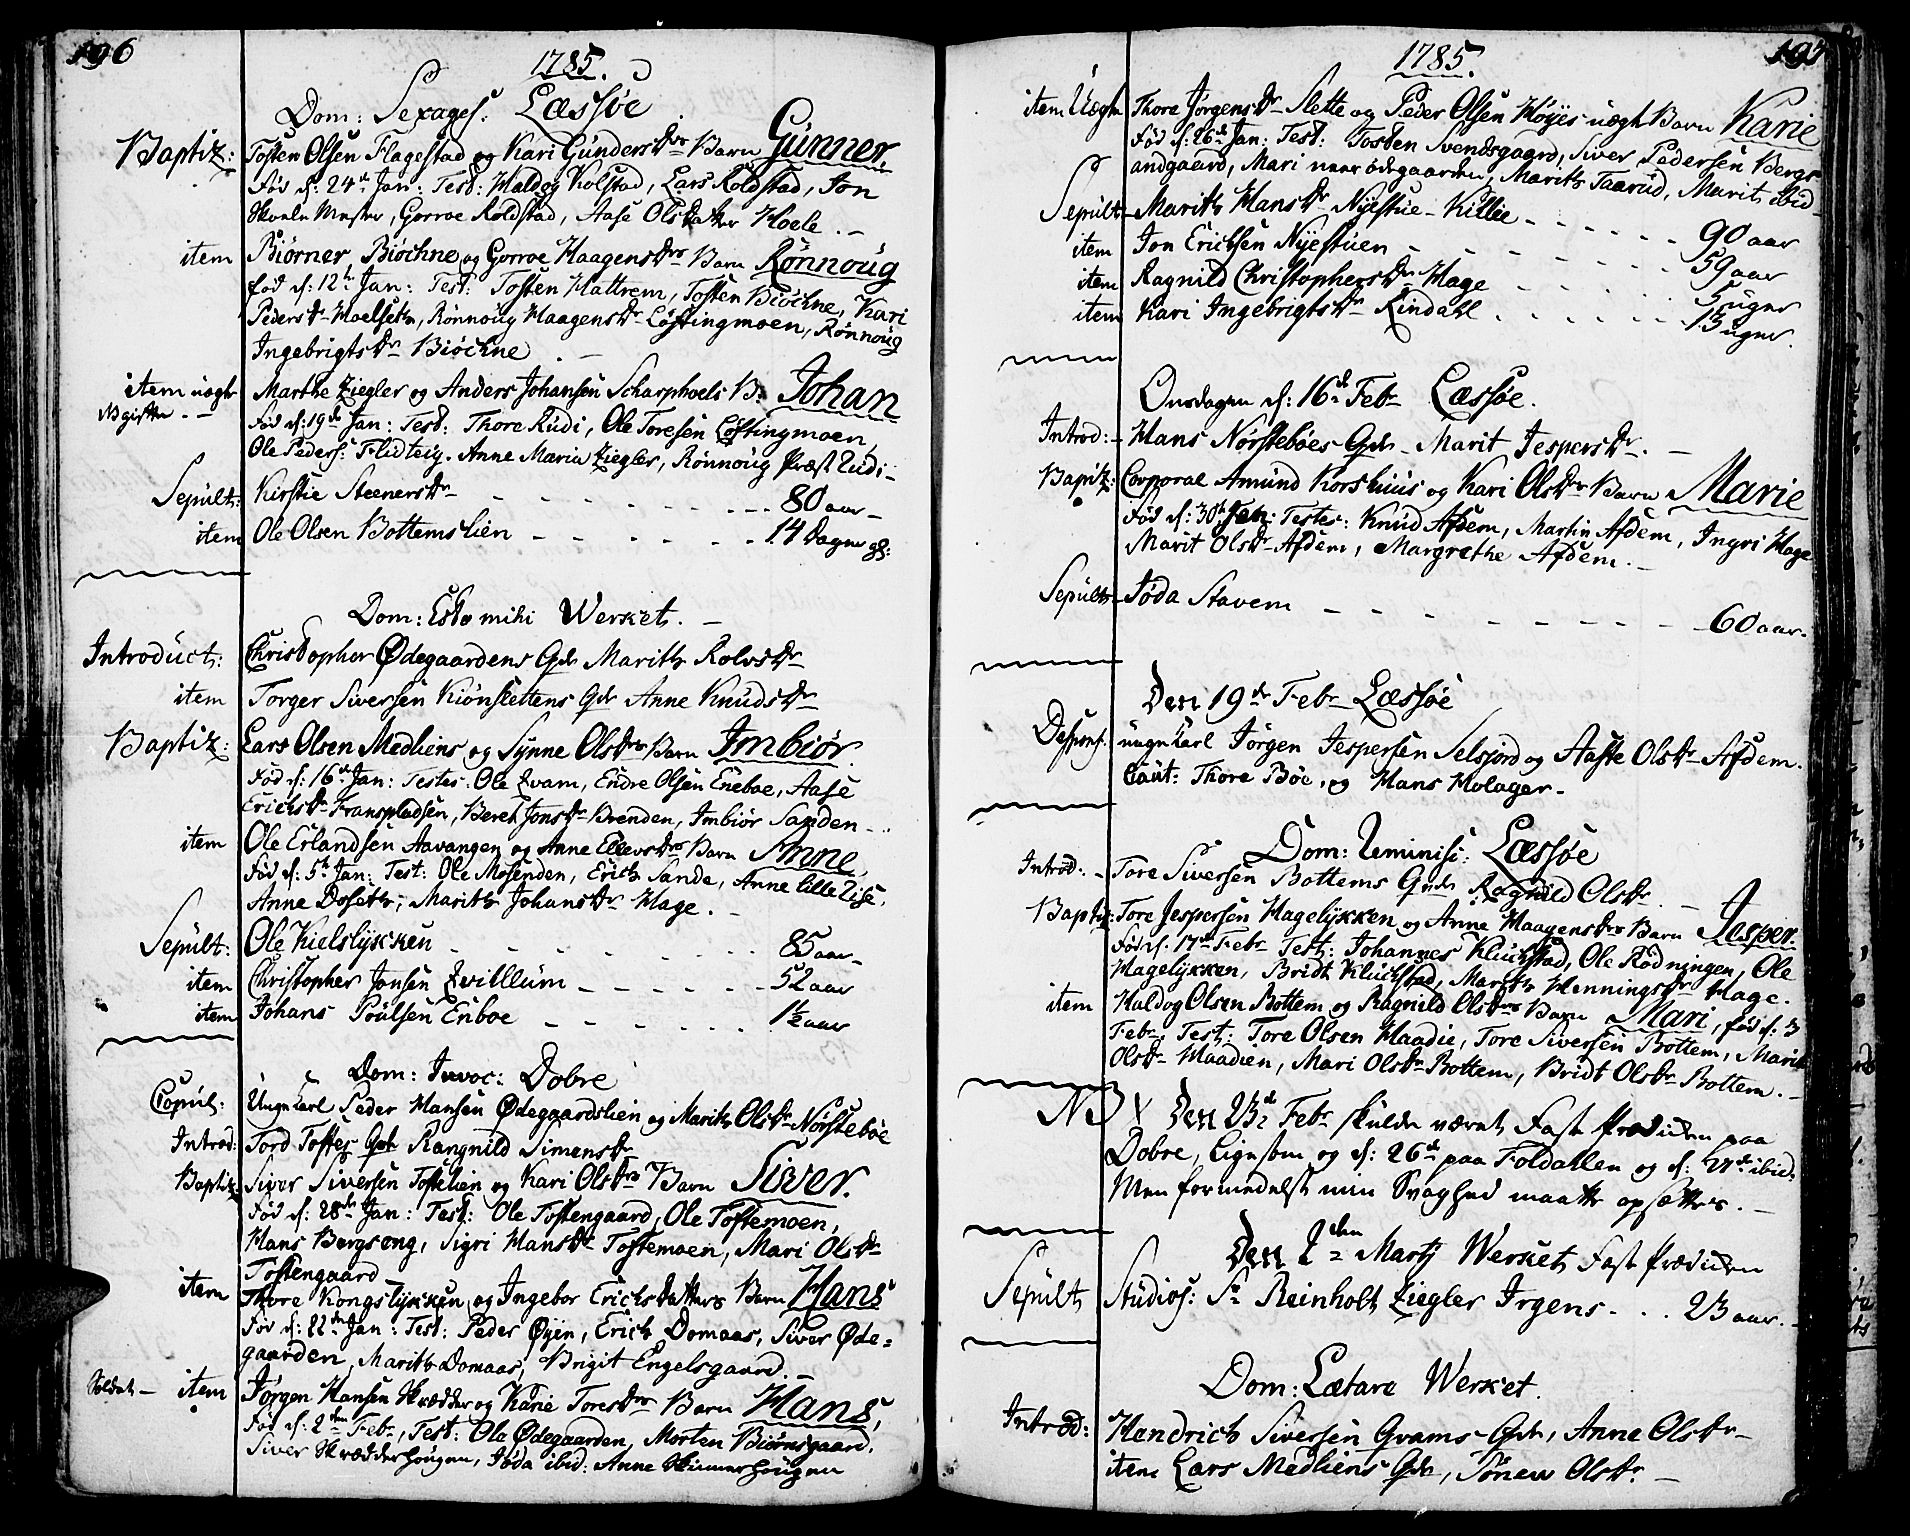 196
1785.
Dom: Sexages: Læssøe
Baptiz: Tosten Olsen Flagestad og Kari Gundersdr Barn Gunner.
Fød d: 24de Jan: Test: Haldog Kolstad, Lars Roldstad, Jon
Skoele Mester, Gorroe Roldstad, Aase Olsdatter Hoele.
item Biørner Biøchne og Gorroe Haagensdrs Barn Rønnoug
fød d: 12te Jan: Test: Tosten Hattrem, Tosten Biøchne, Kari
Pedersdr Hoelseth, Rønnoug Haagensdr Løftingmoen, Rønnoug
Ingebrigtsdr Biøchne.
item uægte Marthe Ziegler og Anders Johansen Scharphoels B: Johan
NB gifte Fød d: 19de Jan: Test: Thore Rudi, Ole Toresen Løftingmoen,
Ole Peders: Flidteig. Anne Maria Ziegler, Rønnoug Præst Rudi
Sepult: Kirstie Steenersdr 80 aar
item Ole Olsen Bottemslien 14 Dage gl:
Dom: Esto mihi Werket.
Introduct: Christopher Ødegaardens Qde Marith Rolvsdr
item Torger Siversen Kiønslettens Qde Anne Knudsdr
Baptiz: Lars Olsen Medliens og Synne Olsdrs Barn Imbiør.
Fød d: 16de Jan: Testes: Ole Qvam, Endre Olsen Eneboe, Aase
Erichsdr Franspladsen, Bereth Jonsdr Brenden, Imbiør Sanden
item Ole Erlandsen Aavangen og Anne Ellevsdrs Barn Anne,
Fød d: 5te Jan: Test: Ole Mosenden, Erich Sande, Anne lille Zise,
Anne Doseth, Marith Johansdr Hage.
Sepult: Ole Kielslykken 85 aar
item Christopher Jonsen Qvillum 52 aar
item Johans Poulsen Enboe 1½ aar
Dom: Invoc: Dobre
Copul: Ungkarl Peder Hansen Ødegaardslien og Marith Olsdr Nørsteboe
Introd: Tord Toftes Qde Rangnild Simensdr
Baptiz Siver Siversen Toftelien og Kari Olsdrs Barn Siver.
Fød d: 28de Jan: Test: Ole Toftengaard, Ole Toftemoen,
Hans Bergseng, Sigri Hansdr Toftemoen, Mari Olsdr
Toftengaard
item Thore Kongslykken og Ingebor Erichsdatters Barn Hans
Fød d: 22de Jan: Test: Peder Øyen, Erich Domaas, Siver Øde-
gaarden, Marith Domaas, Brigit Engelsgaard.
Soldat item Jørgen Hansen Skrædder og Karie Toresdrs Barn Hans,
Fød d: 2den Febr, Test: Ole Ødegaarden, Morten Biørnsgaard,
Siver Skrædderhougen, Jøda ibid: Anne Skinnerhougen
197
1785.
item Uægte Thore Jørgensdr Slette og Peder Olsen Høyes uægte Barn Karie
Fød d: 26de Jan: Test: Tosten Svendsgaard, Siver Pedersen Bergs
andgaard, Mari naar ødegaarden, Marith Taarud, Marit ibid
Sepult Marith Hansdr Nyestue Killie 90 aar
item Jon Erichsen Nyestuen 59 aar
item Ragnild Christophersdr Hage 5 uger
item Kari Ingebrigtsdr Kindahl 13 uger.
Onsdagen d: 16de Febr Læssøe.
Introd: Hans Nørstebøes Qde Marit Jespersdr.
Baptiz: Corporal Amund Korshuus og Kari Olsdrs Barn Marie
Fød d: 30te Jan: Testes: Knud Afdem, Martin Afdem, Ingri Hage
Marit Olsdr Afdem, Margrethe Afdem.
Sepult Jøda Stavem 60 aar.
Den 19de Febr Læssøe
Desponf. ungkarl Jørgen Jespersen Selsjord og Aaste Olsdr Afdem.
Caut: Thore Bøe, og Hans Holager.
Dom: Reminisc: Læssøe
Introd: Tore Siversen Bottems Qde Ragnild Olsdr.
Baptiz: Tore Jespersen Hagelykken og Anne Haagensdrs Barn Jesper.
Fød d: 17de Febr Test: Johannes Kluchstad, Ole Rødningen, Ole
Hagelykken, Bridt Kluchstad, Marith Henningsdr Hage.
item Haldog Olsen Bottem og Ragnild Olsdrs Barn Mari, fød d: 3
Febr, Test: Tore Olsen Maadie, Tore Siversen Bottem, Marit
Olsdr Maadien, Mari Olsdr Bottem, Bridt Olsdr Bottem.
NB Den 23de Febr skulde været Faste Prædiken paa
Dobre, ligesom og d: 26de paa Foldahlen og d: 27de ibid:
Men formedelst min Svaghed maatte opsættes.
Den 2den Martj Werket Faste Prædiken
Sepult Studios: Sr Reinholt Ziegler Irgens 23 aar.
Dom: Lætare Werket.
Introd: Hendrich Siversen Qvams Qde, Anne Olsdr
item Lars Medliens Qde, Sønew Olsdr.